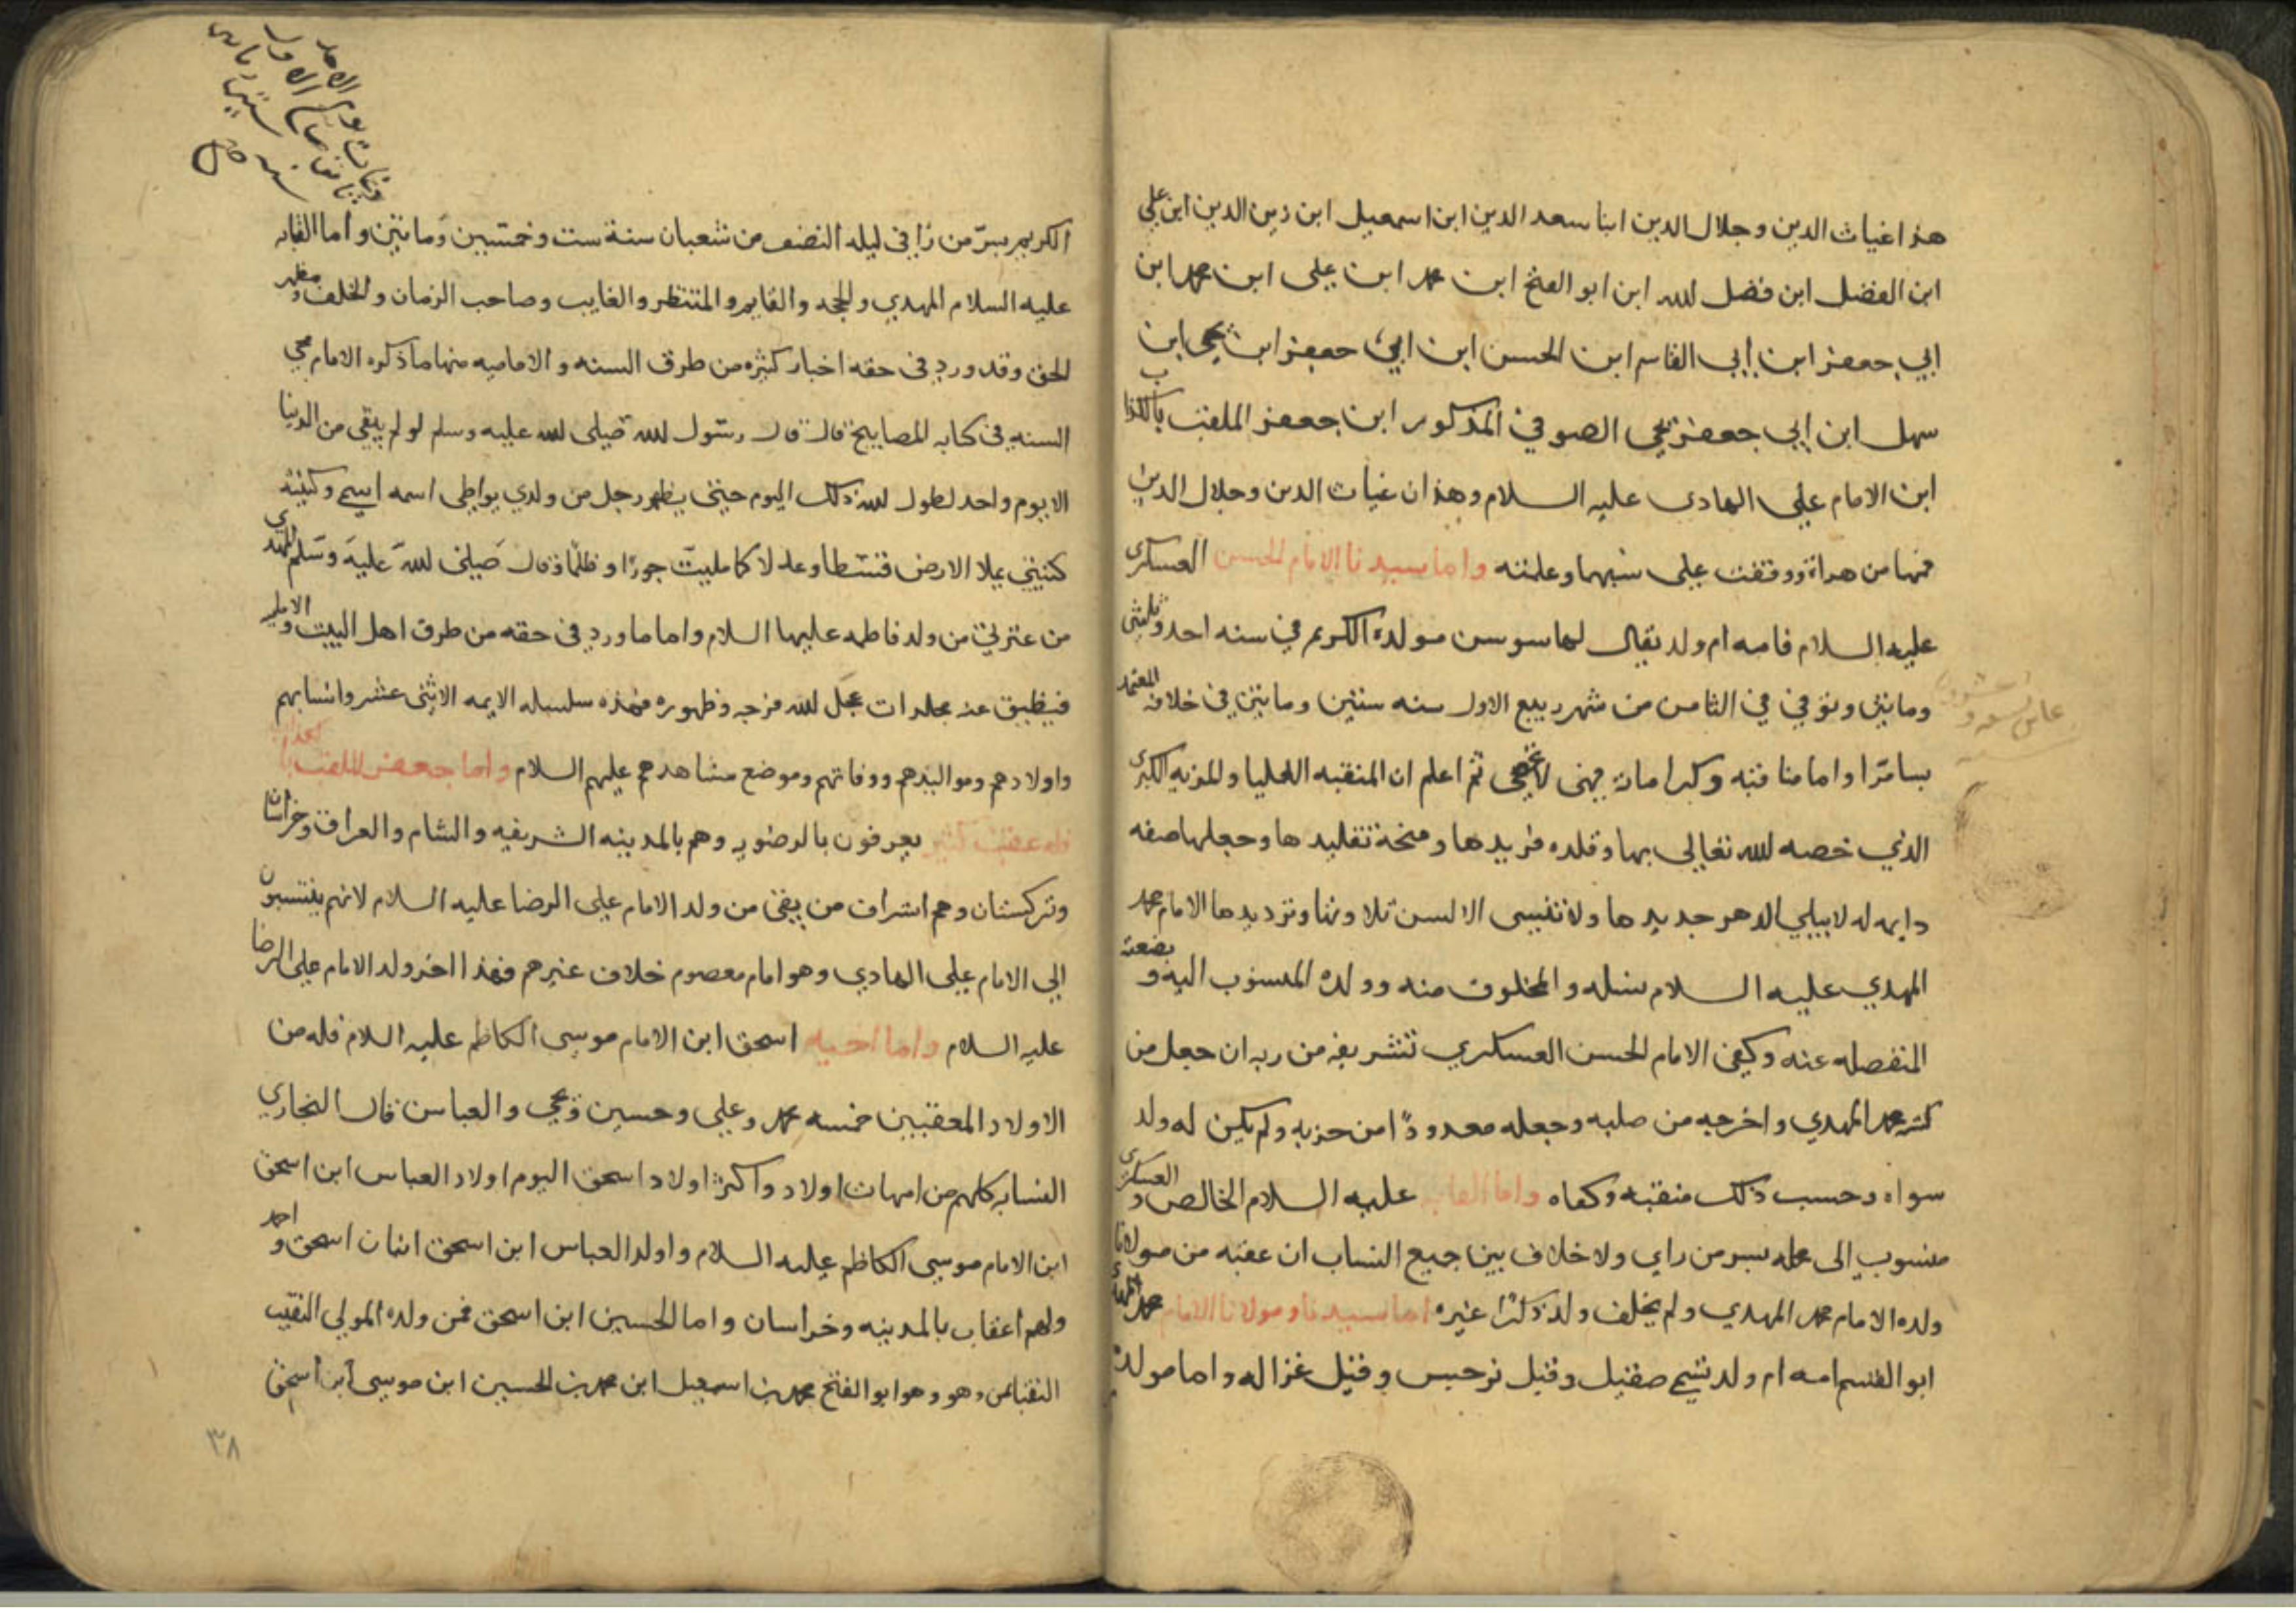 هذا غياث الدين وجلال الدين ابنا سعد الدين ابن اسمعيل ابن زين الدين ابن علي
ابن الفضل ابن فضل الله ابن ابو الفتح ابن محمد ابن علي ابن محمد ابن
ابي جعفر ابن ابي القاسم ابن الحسن ابن ابي جعفر ابن يحيى ابن
سهل ابن ابي جعفر يحيى الصوفي المذكور ابن جعفر الملقب بالكذاب
ابن الامام علي الهادي عليه السلام وهذان غياث الدين وجلال الدين
من هراة ووقفت على نسبهما وعلمته واما سيدنا الامام الحسن العسكري
عليه السلام فامه ام ولد يقال لها سوسن مولده الكريم في سنه احد وثلثين
وماتين وتوفي في الثامن من شهر ربيع الاول سنه ستين وماتين في خلافة المعتمد
بسامرا واما مناقبه وكرامات فهي لا تخفى ثم اعلم ان المنقبه العليا والمزيه الكبرى
الذي خصه الله تعالى بها وقلده فريدها ومنحه تقليدها وجعلها صفه
دايمه له لا يبلي الدهر جديدها ولا تنسى الالسن تلاوتها وترديدها الامام محمد
المهدي عليه السلام نسله والمخلوق منه وولده المنسوب اليه وبضعته
المنفصله عنه وكفى الامام الحسن العسكري تشريفه من ربه ان جعل من
محمد المهدي واخرجه من صلبه وجعله معدودًا من حزبه ولم يكن له ولد
سواه وحسب ذلك منقبه وكفاه واما عليه السلام الخالص والعسكري
منسوب الى محله بسر من راي ولا خلاف بين جميع النساب ان عقبه من مولانا
ولده الامام محمد المهدي ولم يخلف ولد ذكرًا غيره اما سيدنا ومولانا الامام محمد المهدي
ابو القسم امه ام ولد تسمى صقيل وقيل نرجس وقيل غزاله واما مولده
الكريم بسرّ من راي في ليله النصف من شعبان سنة ست وخمسين وماتين واما القابه
عليه السلام المهدي والحجه والقايم والمنتظر والغايب وصاحب الزمان والخلف ومظهر
الحق وقد ورد في حقه اخبار كثيره من طرق السنه والاماميه منها ما ذكره الامام محي
السنه في كتابه المصابيح قال قال رسول الله صلى الله عليه وسلم لو لم يبقى من الدنيا
الا يوم واحد لطول الله ذلك اليوم حتى يظهر رجل من ولدي يواطي اسمه اسمي وكنيته
كنيتي يملا الارض قسطا وعدلا كما مليت جورًا وظلمًا وقال صلى الله عليه وسلم المهدي
من عترتي من ولد فاطمه عليها السلام واما ما ورد في حقه من طرق اهل البيت
فيضيق عنه مجلدات عجل الله فرجه وظهوره فهذه سلسله الايمه الاثنى عشر وانسابهم
واولادهم ومواليدهم ووفاتهم وموضع مشاهدهم عليهم السلام واما جعفر الملقب بالكذاب
فله عقب كثير يعرفون بالرضويه وهم بالمدينه الشريفه والشام والعراق وخراسان
وتركستان وهم اشراف من بقي من ولد الامام علي الرضا عليه السلام لانهم ينتسبون
الى الامام علي الهادي وهو امام معصوم خلاف غيرهم فهذا اخر ولد الامام علي الرضا
عليه السلام واما اخيه اسحق ابن الامام موسى الكاظم عليه السلام فله من
الاولاد المعقبين خمسه محمد وعلي وحسين ويحيى والعباس قال البخاري
النسابه كلهم من امهات اولاد واكثر اولاد اسحق اليوم اولاد العباس ابن اسحق
ابن الامام موسى الكاظم عليه السلام واولد العباس ابن اسحق اثنان اسحق واحمد
ولهم اعقاب بالمدينه وخراسان واما الحسين ابن اسحق فمن ولده المولى النقيب
وهو وهو ابو الفتح محمد بن اسمعيل ابن محمد بن الحسين ابن موسى ابن اسحق
٣٨